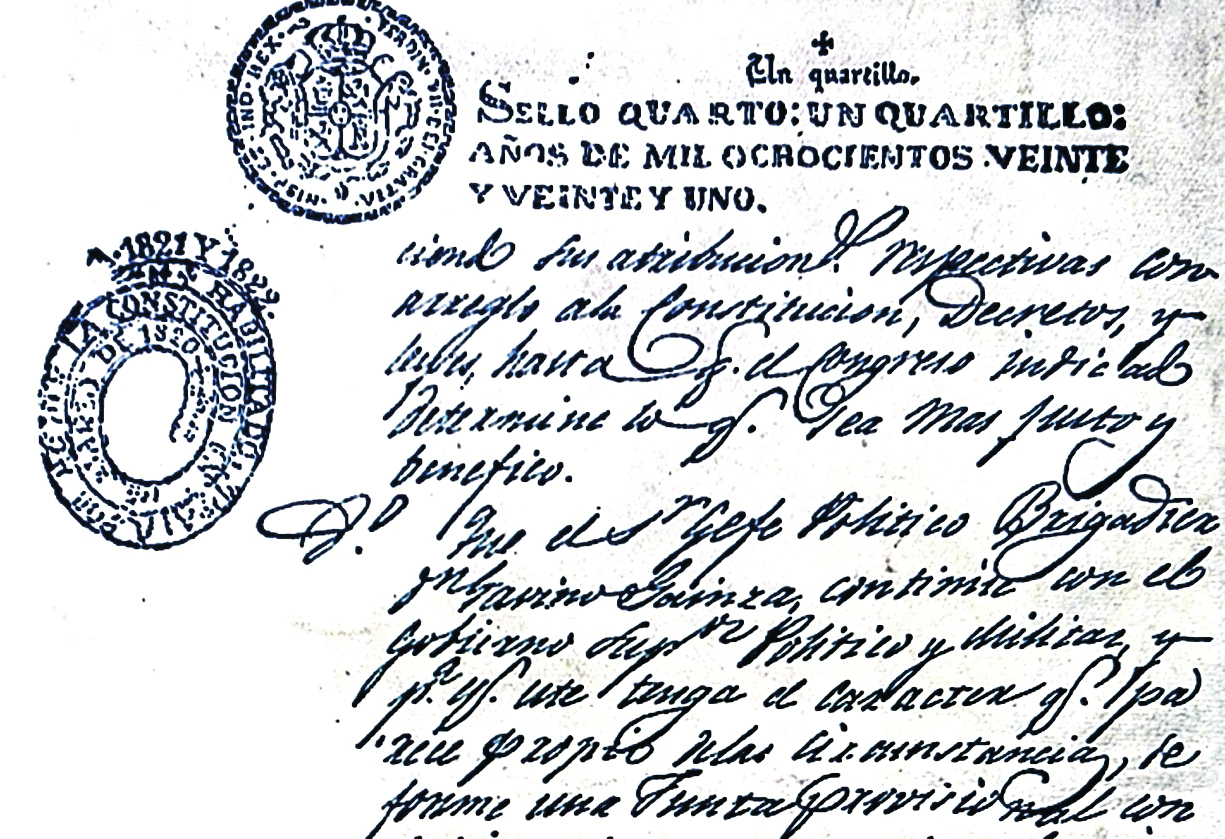 HISP. ET IND. REX. FERDIN. VII. DEI GRATIA.
Un quartillo.
SELLO QUARTO: UN QUARTILLO:
AÑOS DE MIL OCHOCIENTOS VEINTE
Y VEINTE Y UNO.
A. 1821 Y 1822.
HABILITADO
LA CONSTITUCION EN
DE 1820
ciendo sus atribucion.s respectivas con
arreglo ala Constitucion, Decretos, y
leies, hasta q. el Congreso indicado
determine lo q. sea mas justo y
benefico.
8.o Que el S.r Gefe Politico Brigadier
D.n Gavino Gainza, continúe con el
Gobierno Sup.or Politico y Militar, y
p.a q. este tenga el caracter q. pa
rece propio delas circunstancias, se
forme una Junta provisional con